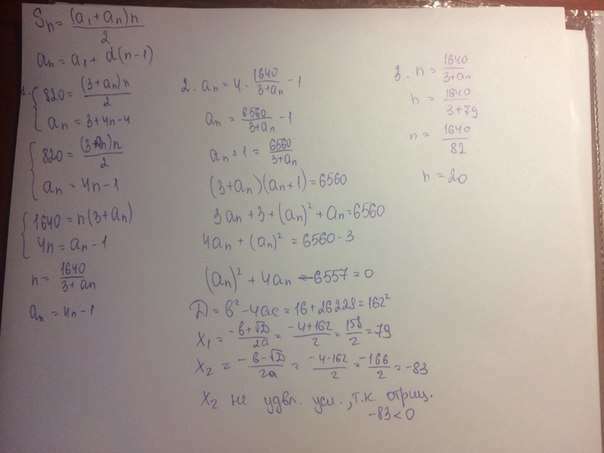 Sₙ = (a₁+aₙ)n / 2
aₙ = a₁ + d(n-1)
1. { 820 = (3+aₙ)n / 2
aₙ = 3+4n-4
{ 820 = (3+aₙ)n / 2
aₙ = 4n-1
{ 1640 = n(3+aₙ)
4n = aₙ - 1
n = 1640 / 3+aₙ
aₙ = 4n-1
2. aₙ = 4 · 1640 / 3+aₙ - 1
aₙ = 6560 / 3+aₙ - 1
aₙ + 1 = 6560 / 3+aₙ
(3+aₙ)(aₙ+1) = 6560
3aₙ + 3 + (aₙ)² + aₙ = 6560
4aₙ + (aₙ)² = 6560 - 3
(aₙ)² + 4aₙ - 6557 = 0
D = b² - 4ac = 16 + 26228 = 162²
X₁ = -b+√D / 2a = -4+162 / 2 = 158 / 2 = 79
X₂ = -b-√D / 2a = -4-162 / 2 = -166 / 2 = -83
X₂ не удвл. усл., т.к. отриц.
-83 < 0
3. n = 1640 / 3+aₙ
n = 1640 / 3+79
n = 1640 / 82
n = 20